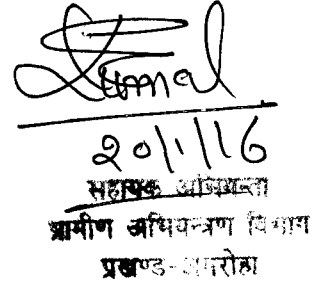 20/1/16
सहायक अभियन्ता
ग्रामीण अभियन्त्रण विभाग
प्रखण्ड-अमरोहा